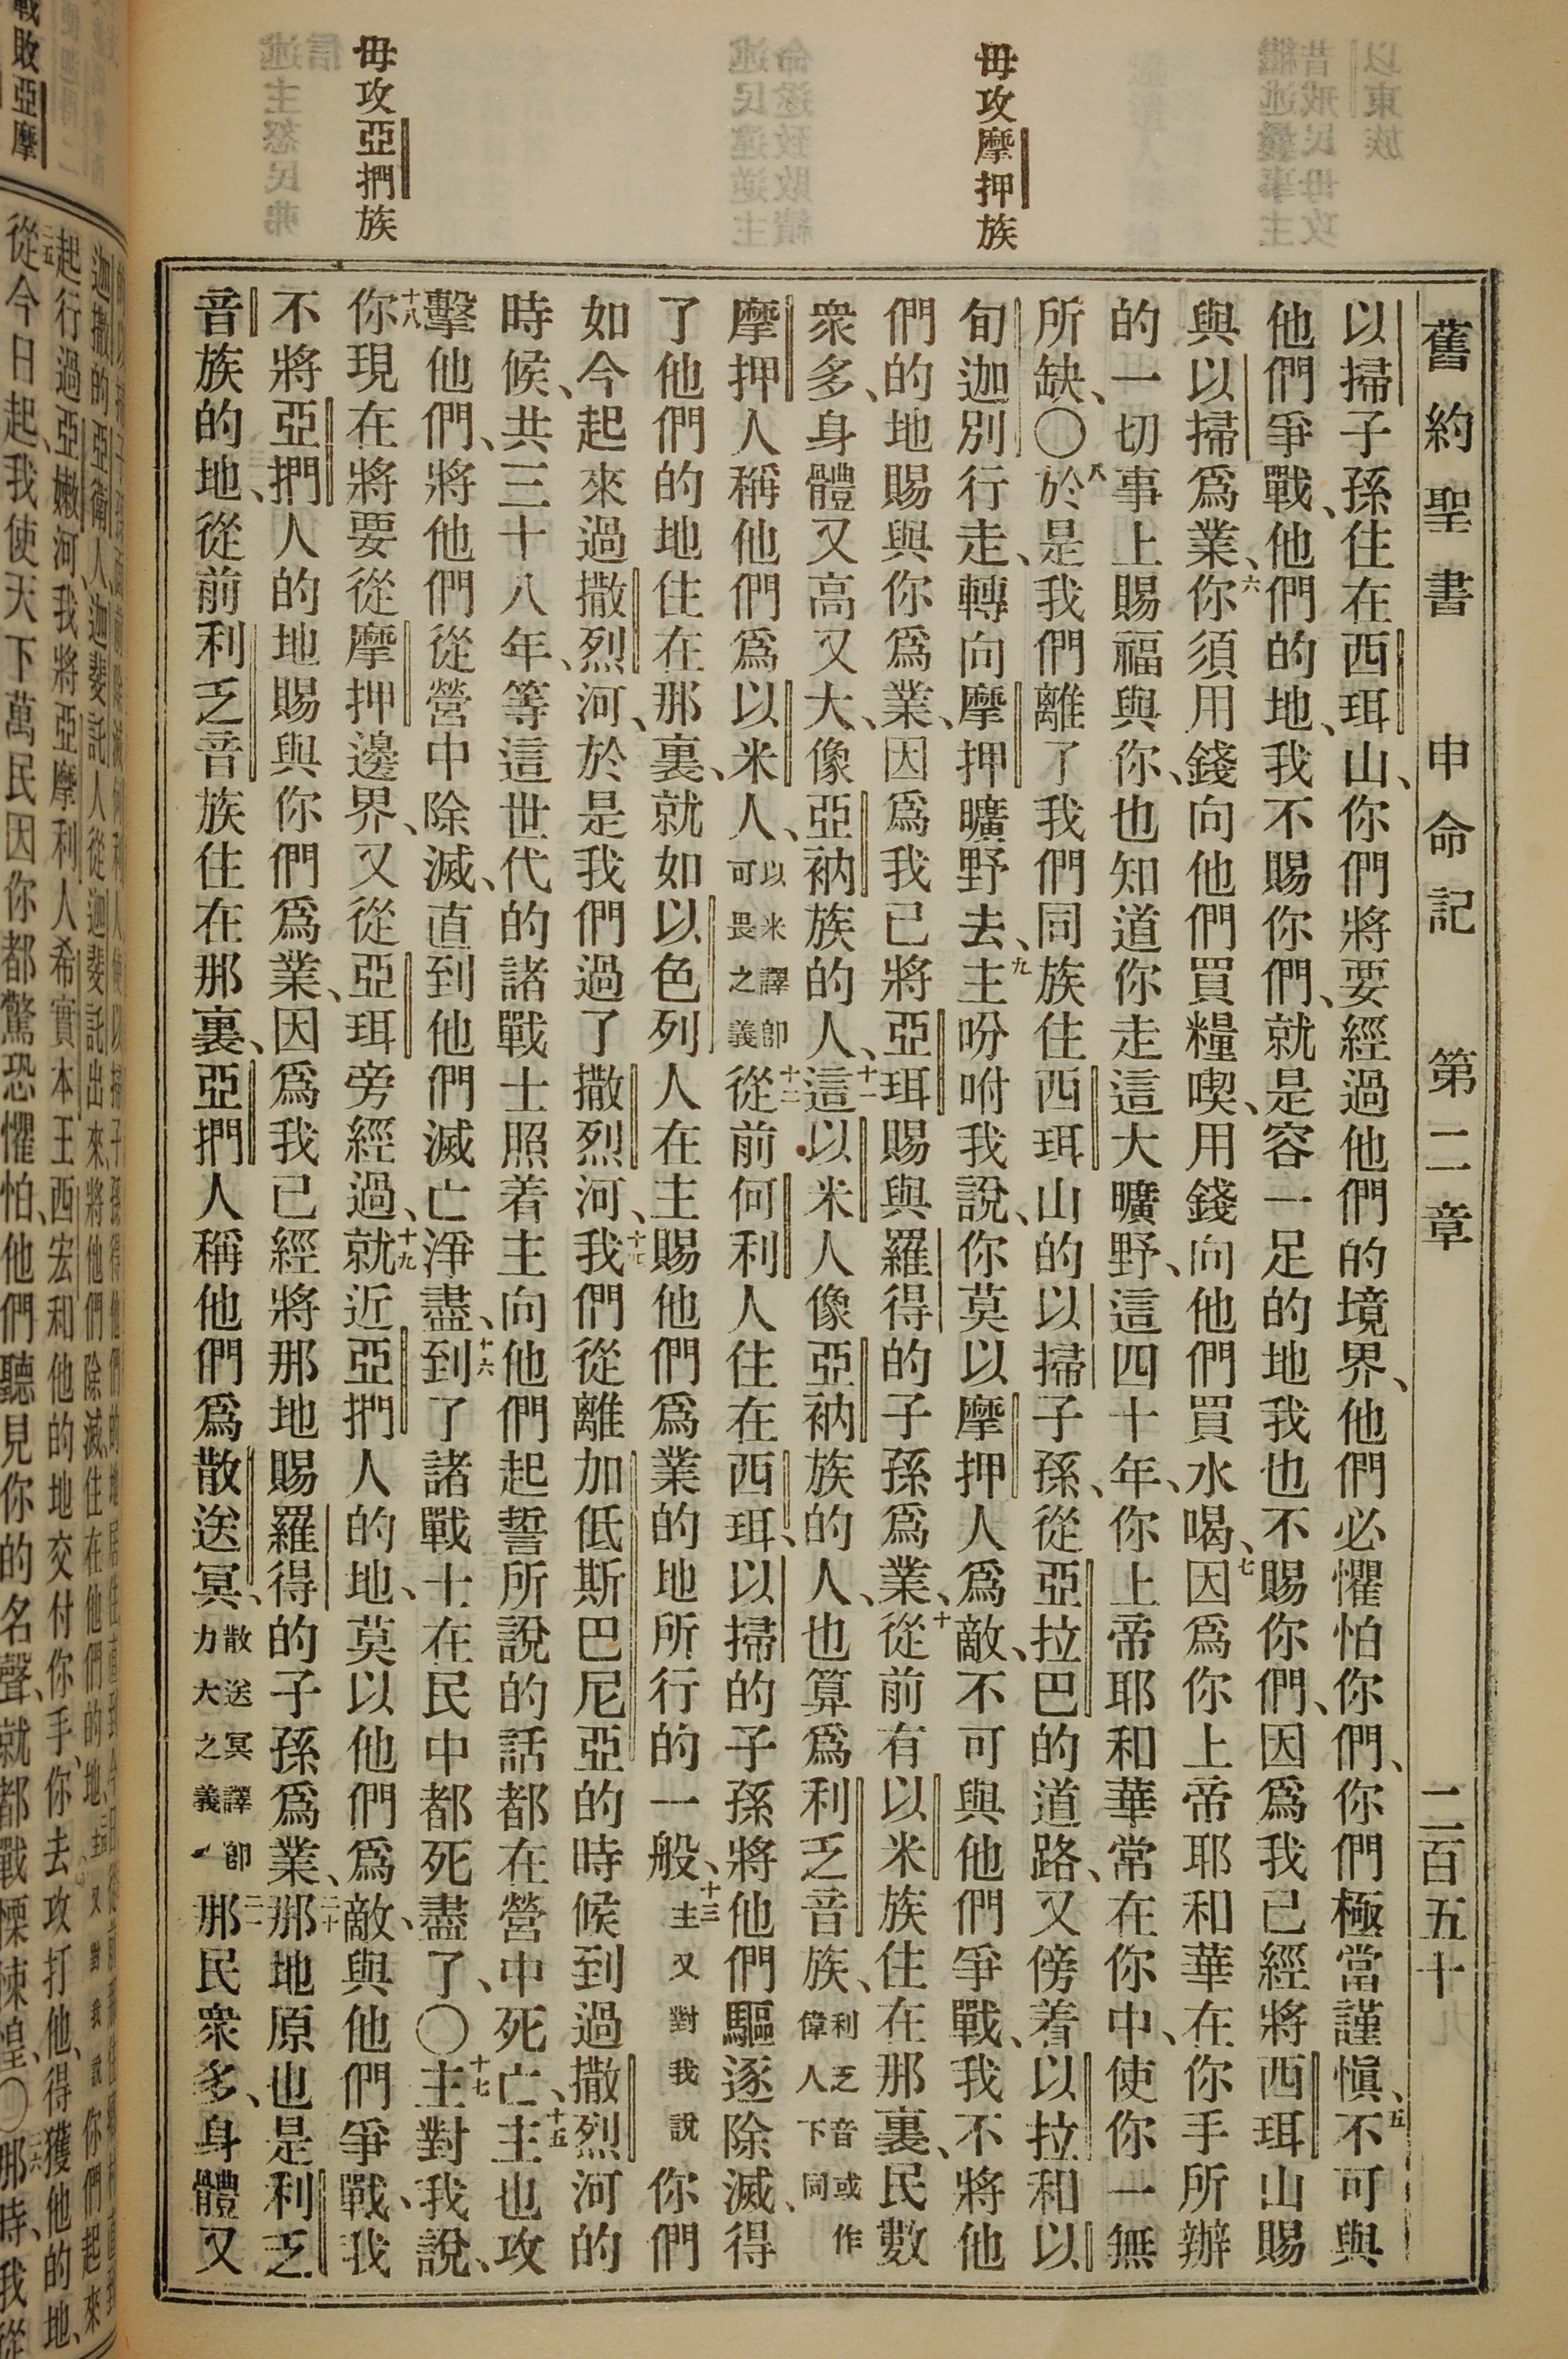 毋攻摩押族
毋攻亞捫族
舊約聖書 申命記 第二章 二百五十
以掃子孫住在西珥山、你們將要經過他們的境界、他們必懼怕你們、你們極當謹愼、五不可與
他們爭戰、他們的地、我不賜你們、就是容一足的地我也不賜你們、因爲我已經將西珥山賜
與以掃爲業、六你須用錢向他們買糧喫、用錢向他們買水喝、七因爲你上帝耶和華在你手所辦
的一切事上賜福與你、也知道你走這大曠野、這四十年、你上帝耶和華常在你中、使你一無
所缺、〇八於是我們離了我們同族住西珥山的以掃子孫、從亞拉巴的道路、又傍着以拉和以
旬迦別行走、轉向摩押曠野去、九主吩咐我說、你莫以摩押人爲敵、不可與他們爭戰、我不將他
們的地賜與你爲業、因爲我已將亞珥賜與羅得的子孫爲業、十從前有以米族住在那裏、民數
衆多、身體又高又大、像亞衲族的人、十一這以米人像亞衲族的人、也算爲利乏音族、利乏音或作偉人下同
摩押人稱他們爲以米人、以米譯卽可畏之義十二從前何利人住在西珥、以掃的子孫將他們驅逐除滅、得
了他們的地住在那裏、就如以色列人在主賜他們爲業的地所行的一般、十三主又對我說你們
如今起來過撒烈河、於是我們過了撒烈河、十七我們從離加低斯巴尼亞的時候到過撒烈河的
時候、共三十八年、等這世代的諸戰士照着主向他們起誓所說的話都在營中死亡、十五主也攻
擊他們、將他們從營中除滅、直到他們滅亡淨盡、十六到了諸戰士在民中都死盡了、〇十七主對我說、
十八你現在將要從摩押邊界、又從亞珥旁經過、十九就近亞捫人的地、莫以他們爲敵、與他們爭戰、我
不將亞捫人的地賜與你們爲業、因爲我已經將那地賜羅得的子孫爲業、二十那地原也是利乏
音族的地、從前利乏音族住在那裏、亞捫人稱他們爲散送冥、散送冥譯卽力大之義二一那民衆多、身體又
戰敗亞摩
起行過亞嫩河、我將亞摩利人希實本王西宏和他的地交付你手、你去攻打他、得獲他的地、
二五從今日起、我使天下萬民因你都驚恐懼怕、他們聽見你的名聲、就都戰慄悚惶、〇二六那時、我從